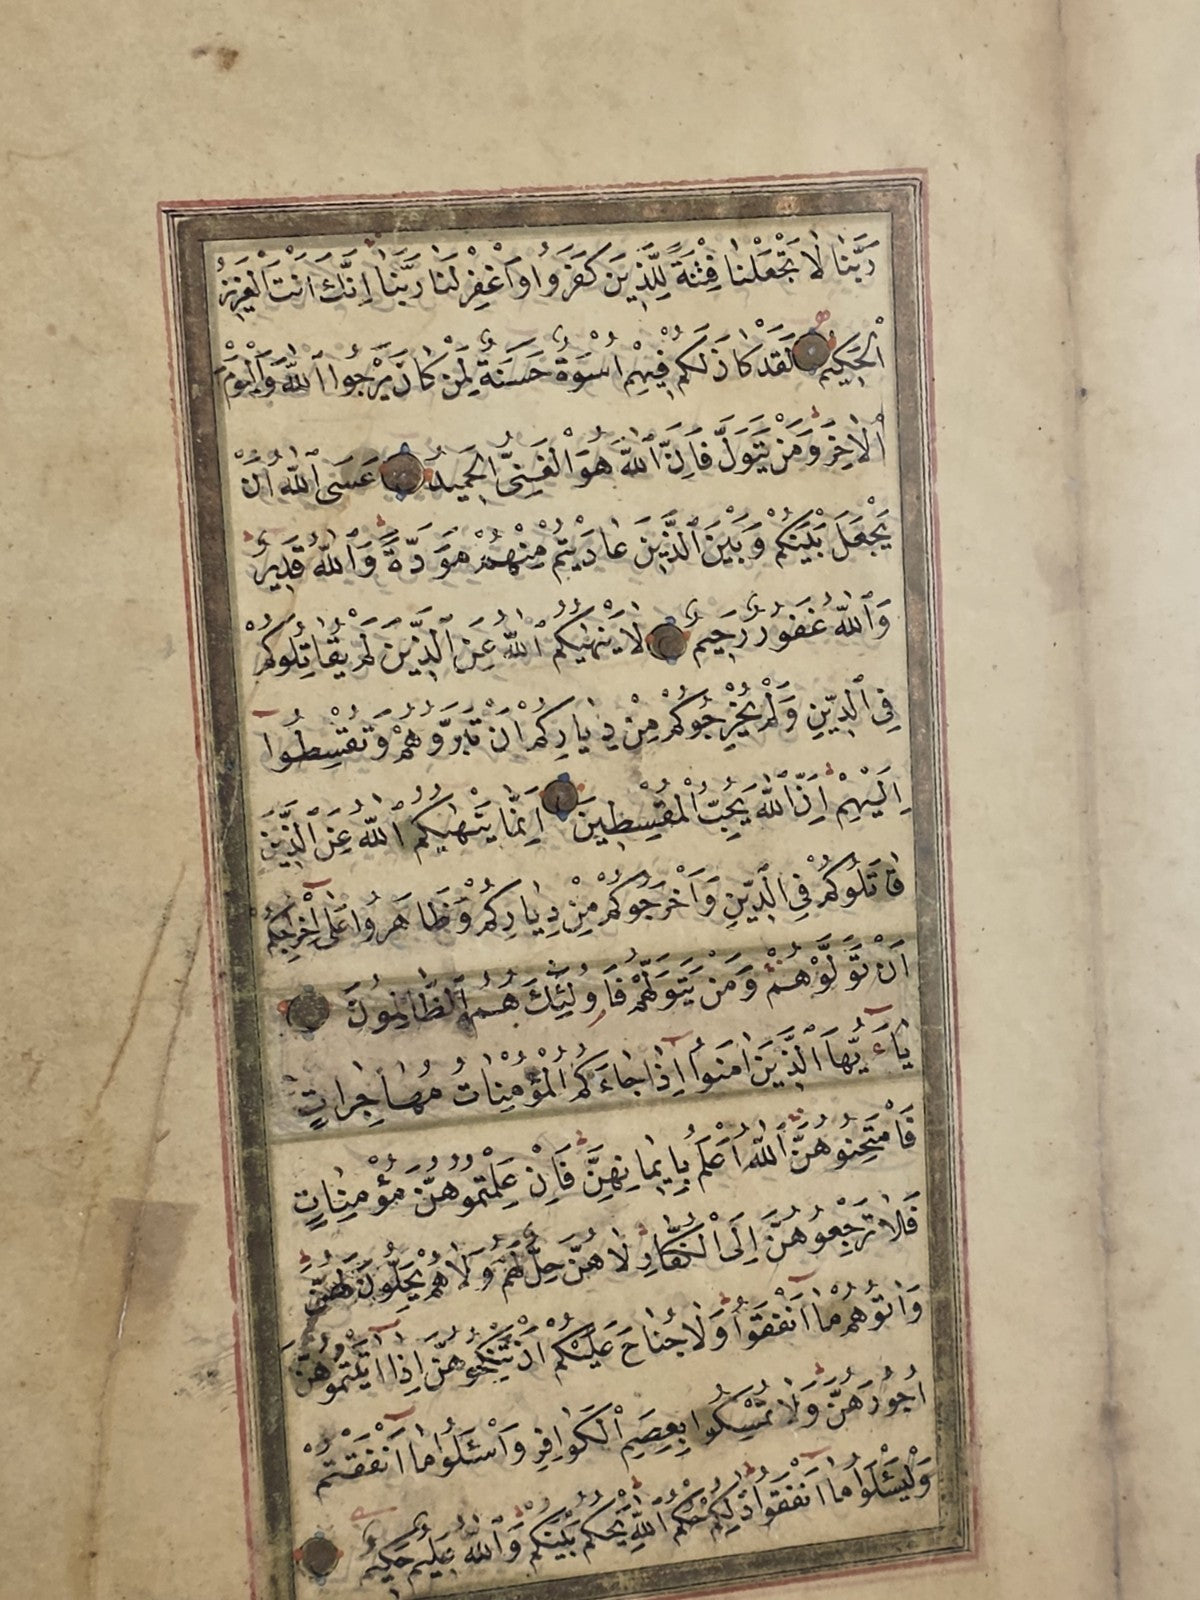 رَبَّنَا لَا تَجْعَلْنَا فِتْنَةً لِلَّذِينَ كَفَرُوا وَاغْفِرْ لَنَا رَبَّنَا اِنَّكَ اَنْتَ الْعَزِيزُ
الْحَكِيمُ لَقَدْ كَانَ لَكُمْ فِيهِمْ اُسْوَةٌ حَسَنَةٌ لِمَنْ كَانَ يَرْجُوا اللّٰهَ وَالْيَوْمَ
الْاٰخِرَ وَمَنْ يَتَوَلَّ فَاِنَّ اللّٰهَ هُوَ الْغَنِىُّ الْحَمِيدُ عَسَى اللّٰهُ اَنْ
يَجْعَلَ بَيْنَكُمْ وَبَيْنَ الَّذِينَ عَادَيْتُمْ مِنْهُمْ مَوَدَّةً وَاللّٰهُ قَدِيرٌ
وَاللّٰهُ غَفُورٌ رَحِيمٌ لَا يَنْهٰيكُمُ اللّٰهُ عَنِ الَّذِينَ لَمْ يُقَاتِلُوكُمْ
فِى الدِّينِ وَلَمْ يُخْرِجُوكُمْ مِنْ دِيَارِكُمْ اَنْ تَبَرُّوهُمْ وَتُقْسِطُوا
اِلَيْهِمْ اِنَّ اللّٰهَ يُحِبُّ الْمُقْسِطِينَ اِنَّمَا يَنْهٰيكُمُ اللّٰهُ عَنِ الَّذِينَ
قَاتَلُوكُمْ فِى الدِّينِ وَاَخْرَجُوكُمْ مِنْ دِيَارِكُمْ وَظَاهَرُوا عَلٰى اِخْرَاجِكُمْ
اَنْ تَوَلَّوْهُمْ وَمَنْ يَتَوَلَّهُمْ فَاُولٰئِكَ هُمُ الظَّالِمُونَ
يَاءَيُّهَا الَّذِينَ اٰمَنُوا اِذَا جَاءَكُمُ الْمُؤْمِنَاتُ مُهَاجِرَاتٍ
فَامْتَحِنُوهُنَّ اَللّٰهُ اَعْلَمُ بِاِيمَانِهِنَّ فَاِنْ عَلِمْتُمُوهُنَّ مُؤْمِنَاتٍ
فَلَا تَرْجِعُوهُنَّ اِلَى الْكُفَّارِ لَا هُنَّ حِلٌّ لَهُمْ وَلَا هُمْ يَحِلُّونَ لَهُنَّ
وَاٰتُوهُمْ مَا اَنْفَقُوا وَلَا جُنَاحَ عَلَيْكُمْ اَنْ تَنْكِحُوهُنَّ اِذَا اٰتَيْتُمُوهُنَّ
اُجُورَهُنَّ وَلَا تُمْسِكُوا بِعِصَمِ الْكَوَافِرِ وَاسْئَلُوا مَا اَنْفَقْتُمْ
وَلْيَسْئَلُوا مَا اَنْفَقُوا ذٰلِكُمْ حُكْمُ اللّٰهِ يَحْكُمُ بَيْنَكُمْ وَاللّٰهُ عَلِيمٌ حَكِيمٌ